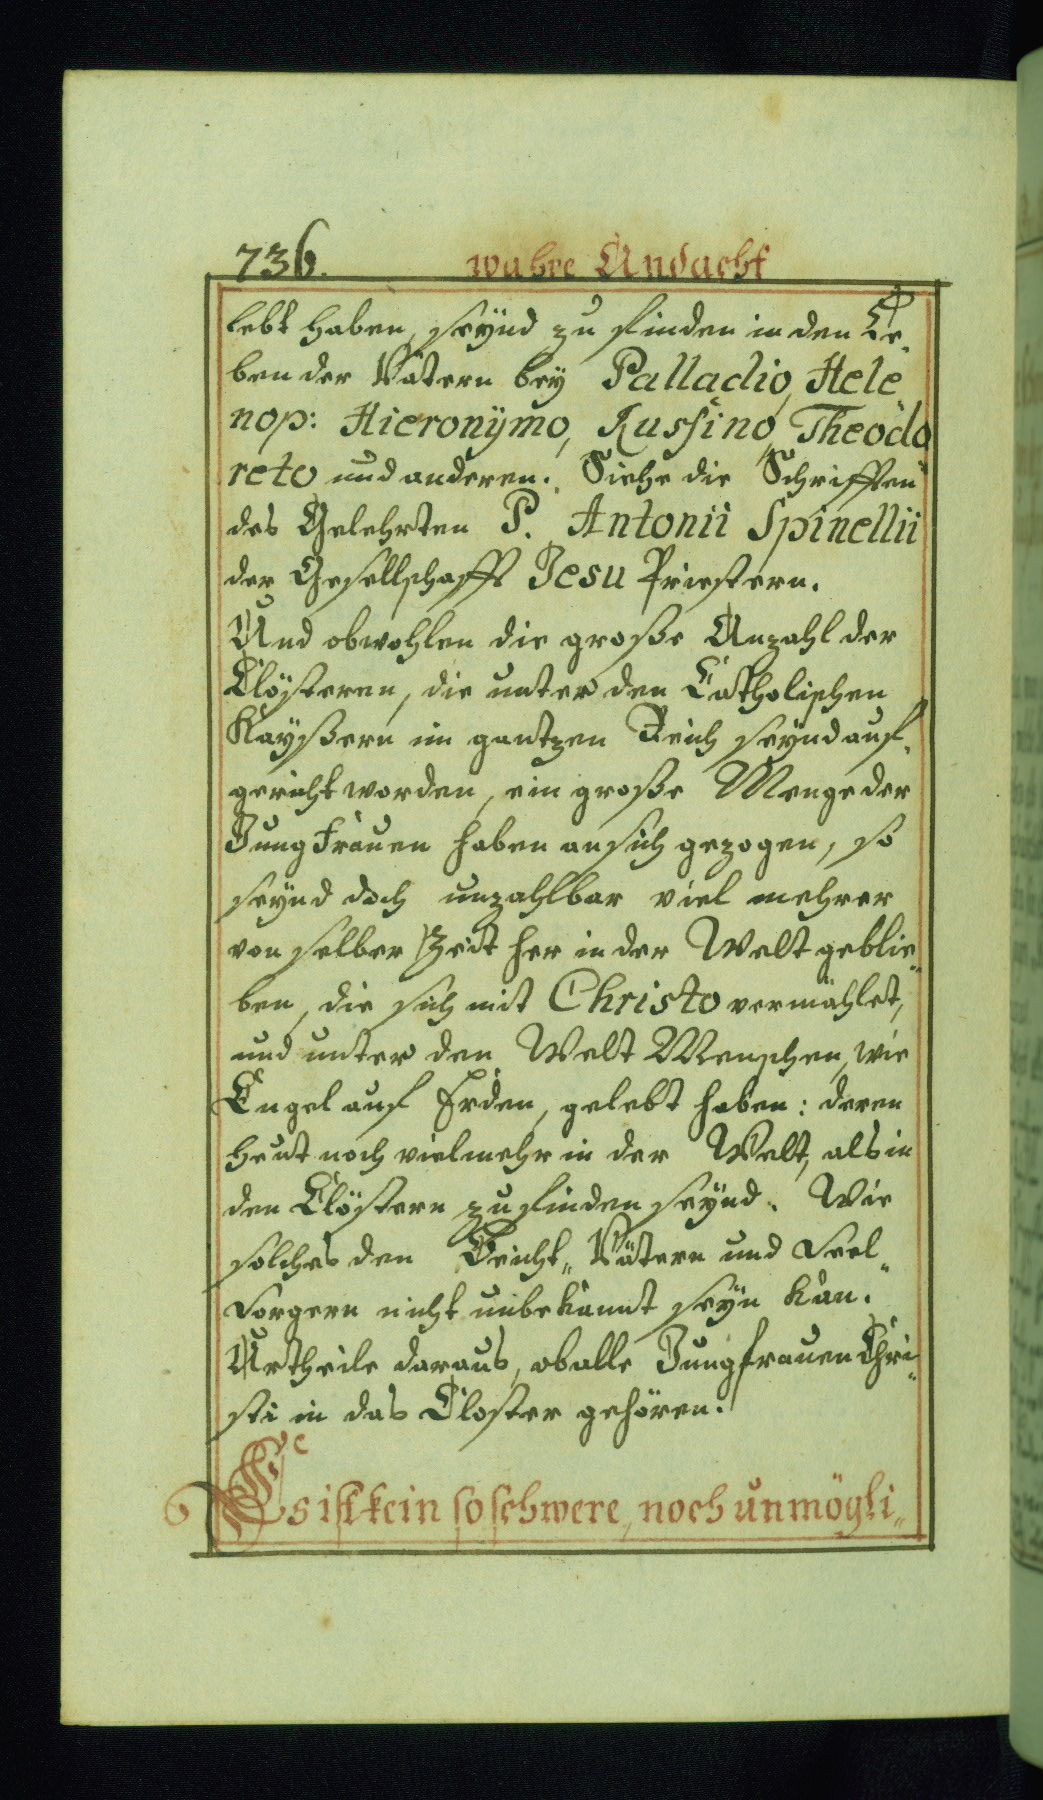 736. wahre Andacht
lebt haben, seÿnd zu finden in den Le„
ben der Vätern beÿ Palladio, Hele„
nop: Hieronÿmo, Russino, Theodo„
reto und anderen. Siehe die Schrifften
des Gelehrten P. Antonii Spinellii
der Gesellschafft Jesu Priestern.
Und obwohlen die große Anzahl der
Clösteren, die unter den Catholischen
Kaÿßern im gantzen Reich seÿnd auf„
gericht worden, ein große Menge der
Jungfrauen haben an sich gezogen, so
seÿnd doch unzahlbar viel mehrer
von selber Zeit her in der Welt geblie„
ben, die sich mit Christo vermählet,
und unter den Welt Menschen, wie
Engel auf Erden, gelebt haben: deren
heut noch vielmehr in der Welt, als in
den Clöstern zu finden seÿnd. Wie
solches den Beicht„Vätern und Seel„
Sorgern nicht unbekannt seÿn kan.
Urtheile daraus, ob alle Jungfrauen Chri„
sti in das Closter gehören.
Es ist kein so schwere, noch unmögli„